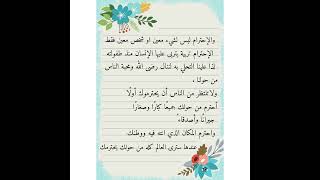 والإحترام ليس لشيء معين او شخص معين فقط
الإحترام تربية يتربى عليها الإنسان منذ طفولته
لذا علينا التحلي به لننال رضى الله ومحبة الناس
من حولنا .
ولا تنتظر من الناس أن يحترموك أولًا
أحترم من حولك جميعًا كبارًا وصغارًا
جيرانًا وأصدقاءً
واحترم المكان الذي انته فيه ووطنك
عندها سترى العالم كله من حولك يحترمك